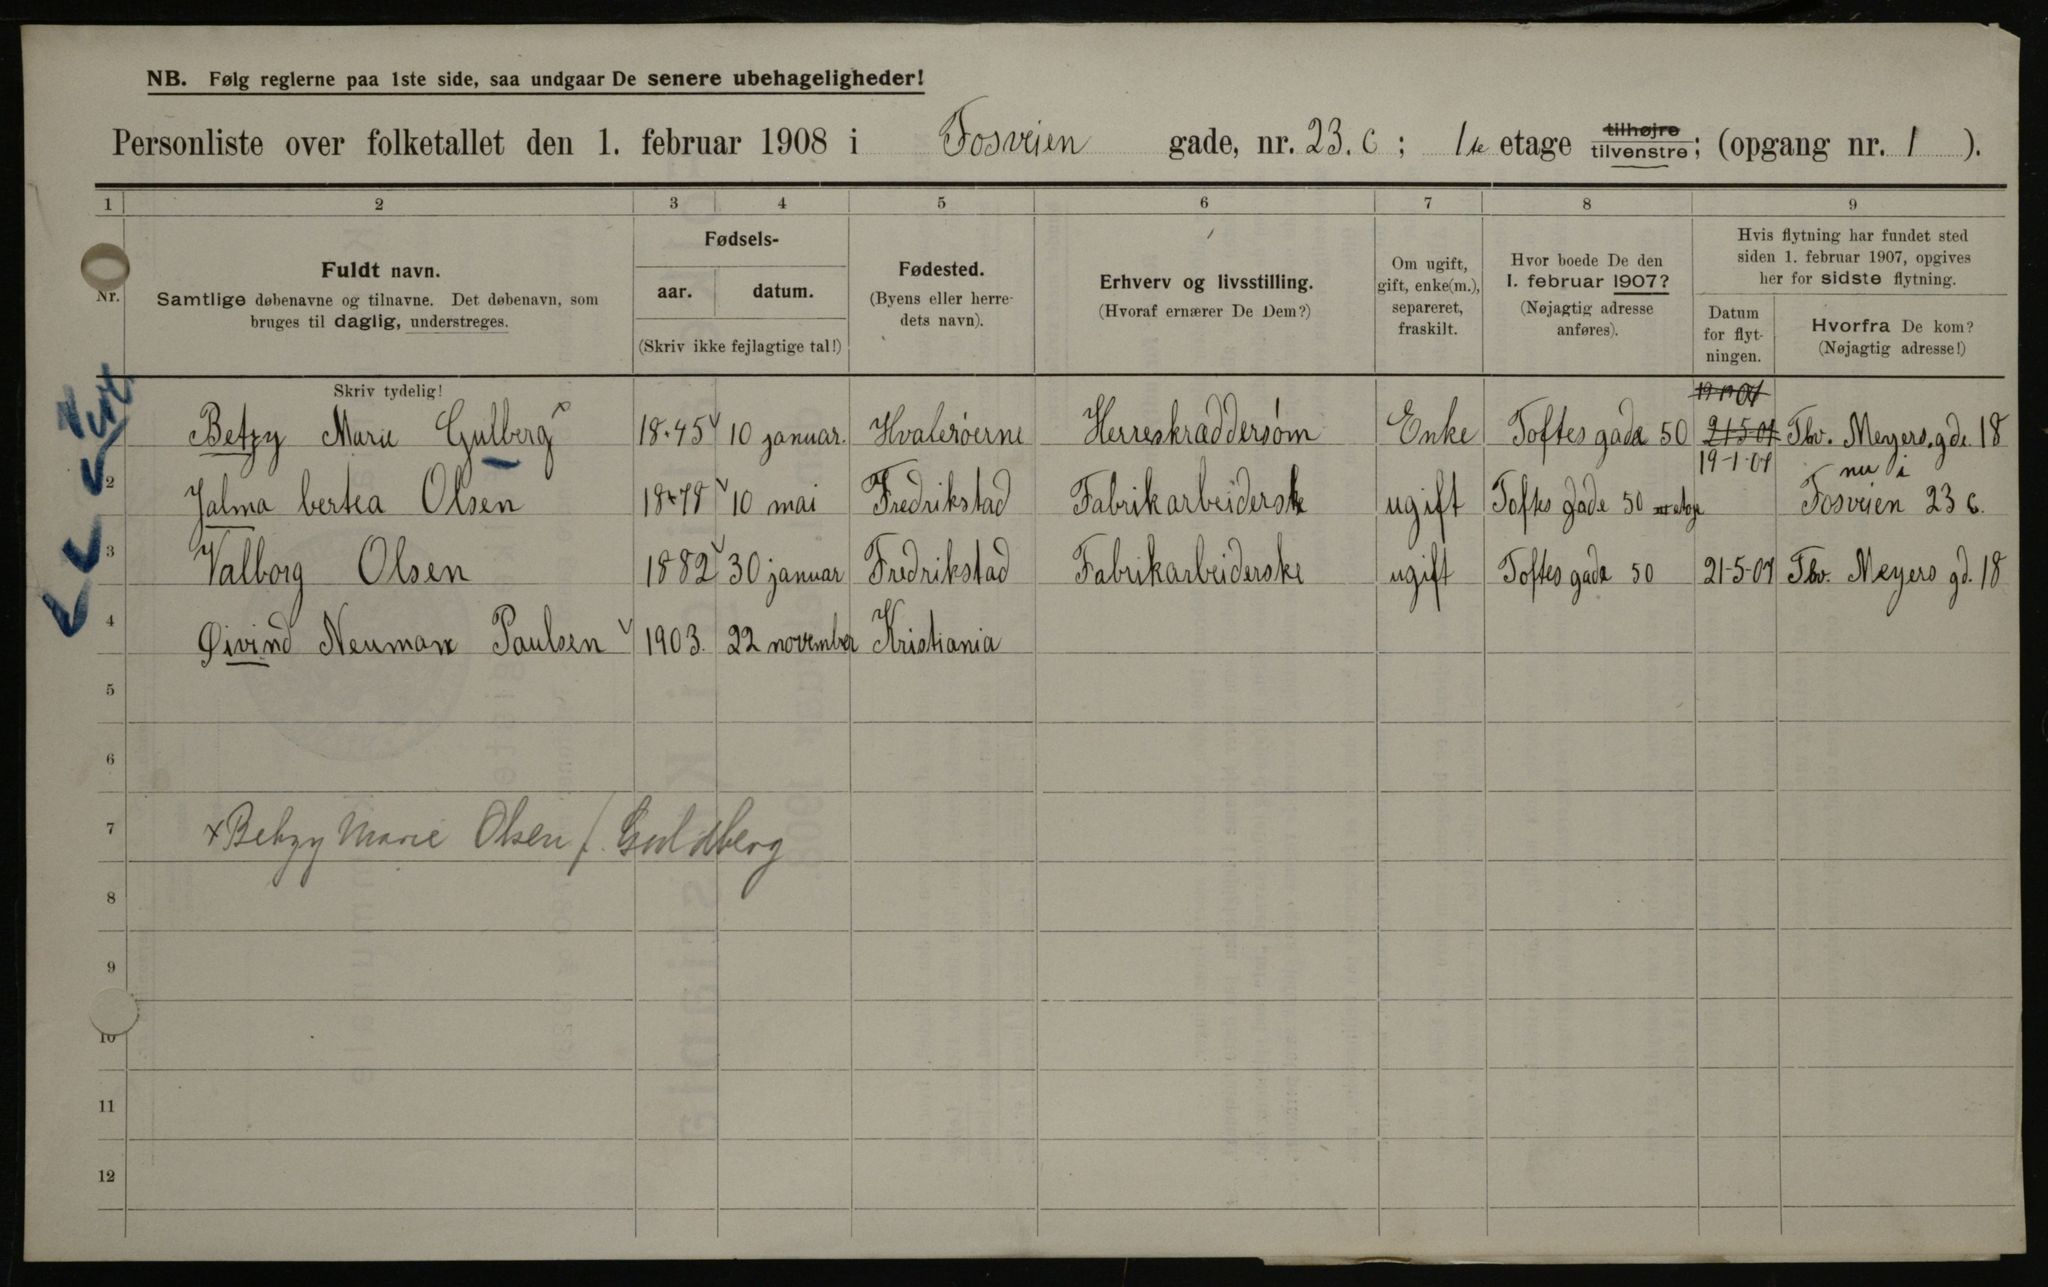 NB. Følg reglerne paa 1ste side, saa undgaar De senere ubehageligheder!
Personliste over folketallet den 1. februar 1908 i Fosveien gade, nr. 23. c ; 1ste etage tilhøjre tilvenstre; (opgang nr. 1 ).
1 2 3 4 5 6 7 8 9
Nr.
Fuldt navn.
Samtlige døbenavne og tilnavne. Det døbenavn, som
bruges til daglig, understreges.
Fødsels-
aar. datum.
(Skriv ikke fejlagtige tal!)
Fødested.
(Byens eller herre-
dets navn).
Erhverv og livsstilling.
(Hvoraf ernærer De Dem?)
Om ugift,
gift, enke(m.),
separeret,
fraskilt.
Hvor boede De den
1. februar 1907?
(Nøjagtig adresse
anføres).
Hvis flytning har fundet sted
siden 1. februar 1907, opgives
her for sidste flytning.
Datum
for flyt-
ningen.
Hvorfra De kom?
(Nøjagtig adresse!)
Skriv tydelig!
Betzy Marie Gulberg x 1845 10 januar. Hvalerøerne Herreskræddersøm Enke Toftes gade 50 21-5-07 Thv. Meyers. gde. 18
19-1-07 nu i
2 Jalma bertea Olsen 1878 10 mai Fredrikstad Fabrikarbeiderske ugift Toftes gade 50 etage Fosveien 23 c.
3 Valborg Olsen 1882 30 januar Fredrikstad Fabrikarbeiderske ugift Toftes gade 50 21-5-07 Thv. Meyers gd. 18
4 Øivind Neuman Paulsen 1903. 22 november Kristiania
5
6
7 x Betzy Marie Olsen f. Guldberg
8
9
10
11
12